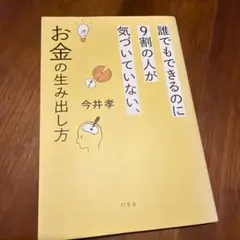 誰でもできるのに
9割の人が
気づいていない、
お金の生み出し方
今井孝
幻冬舎